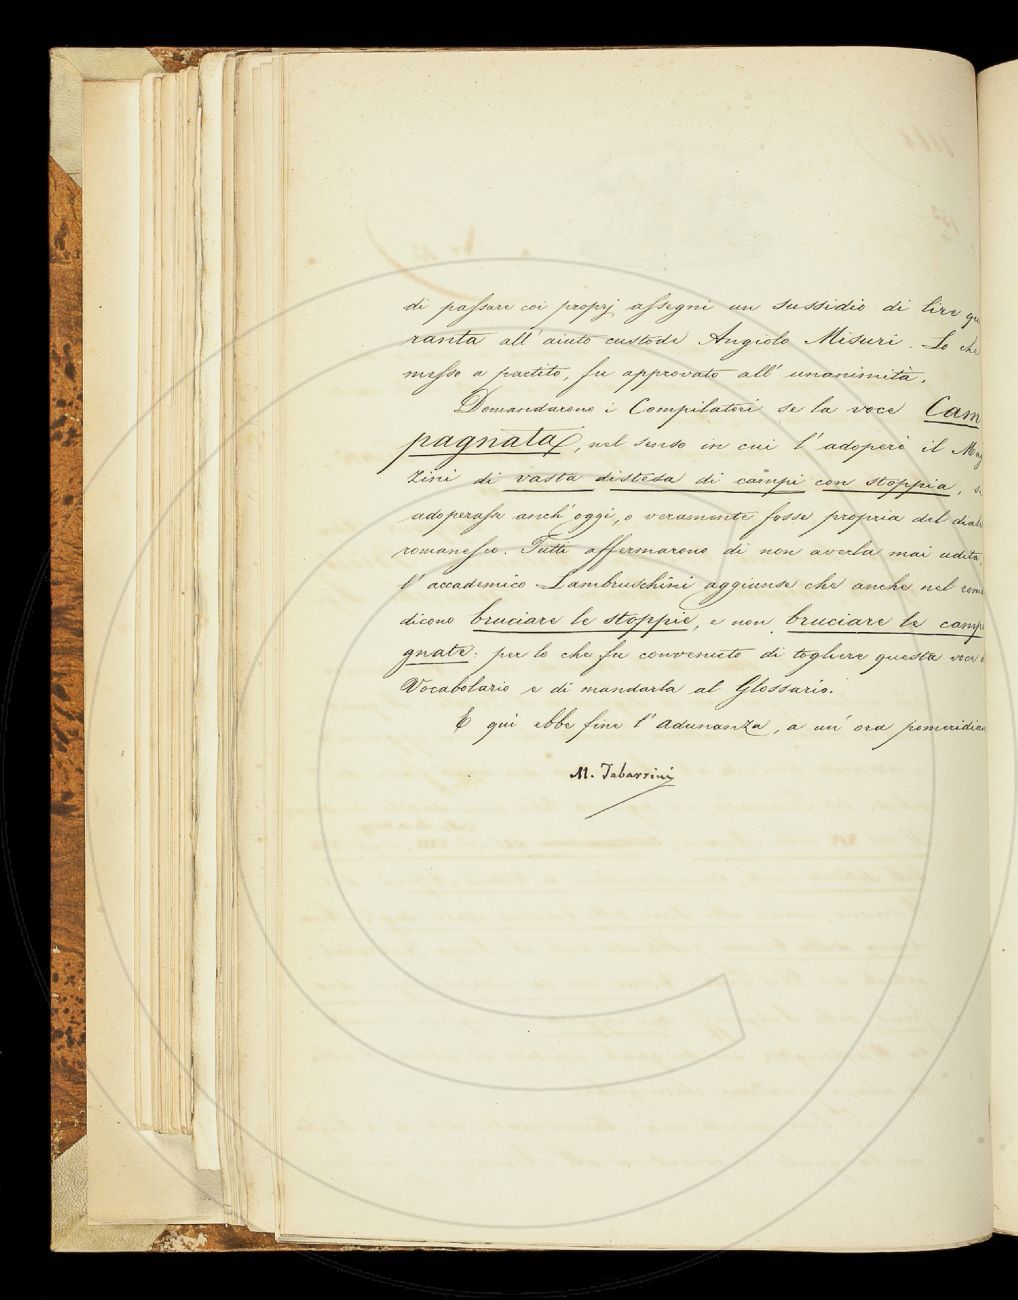 di passare coi proprj assegni un sussidio di lire qua
ranta all'aiuto custode Angiolo Misuri. Lo che
messo a partito, fu approvato all'unanimità.
Domandarono i Compilatori se la voce Cam
pagnata, nel senso in cui l'adoperò il Mag
zini di vasta distesa di campi con stoppia, s
adoperasse anch'oggi, o veramente fosse propria del dial
romanesco. Tutti affermarono di non averla mai udita,
l'accademico Lambruschini aggiunse che anche nel rom
dicono bruciare le stoppie, e non bruciare le camp
gnate: per lo che fu convenuto di togliere questa voce
Vocabolario e di mandarla al Glossario.
E qui ebbe fine l'adunanza, a un'ora pomeridian
M. Tabarrini